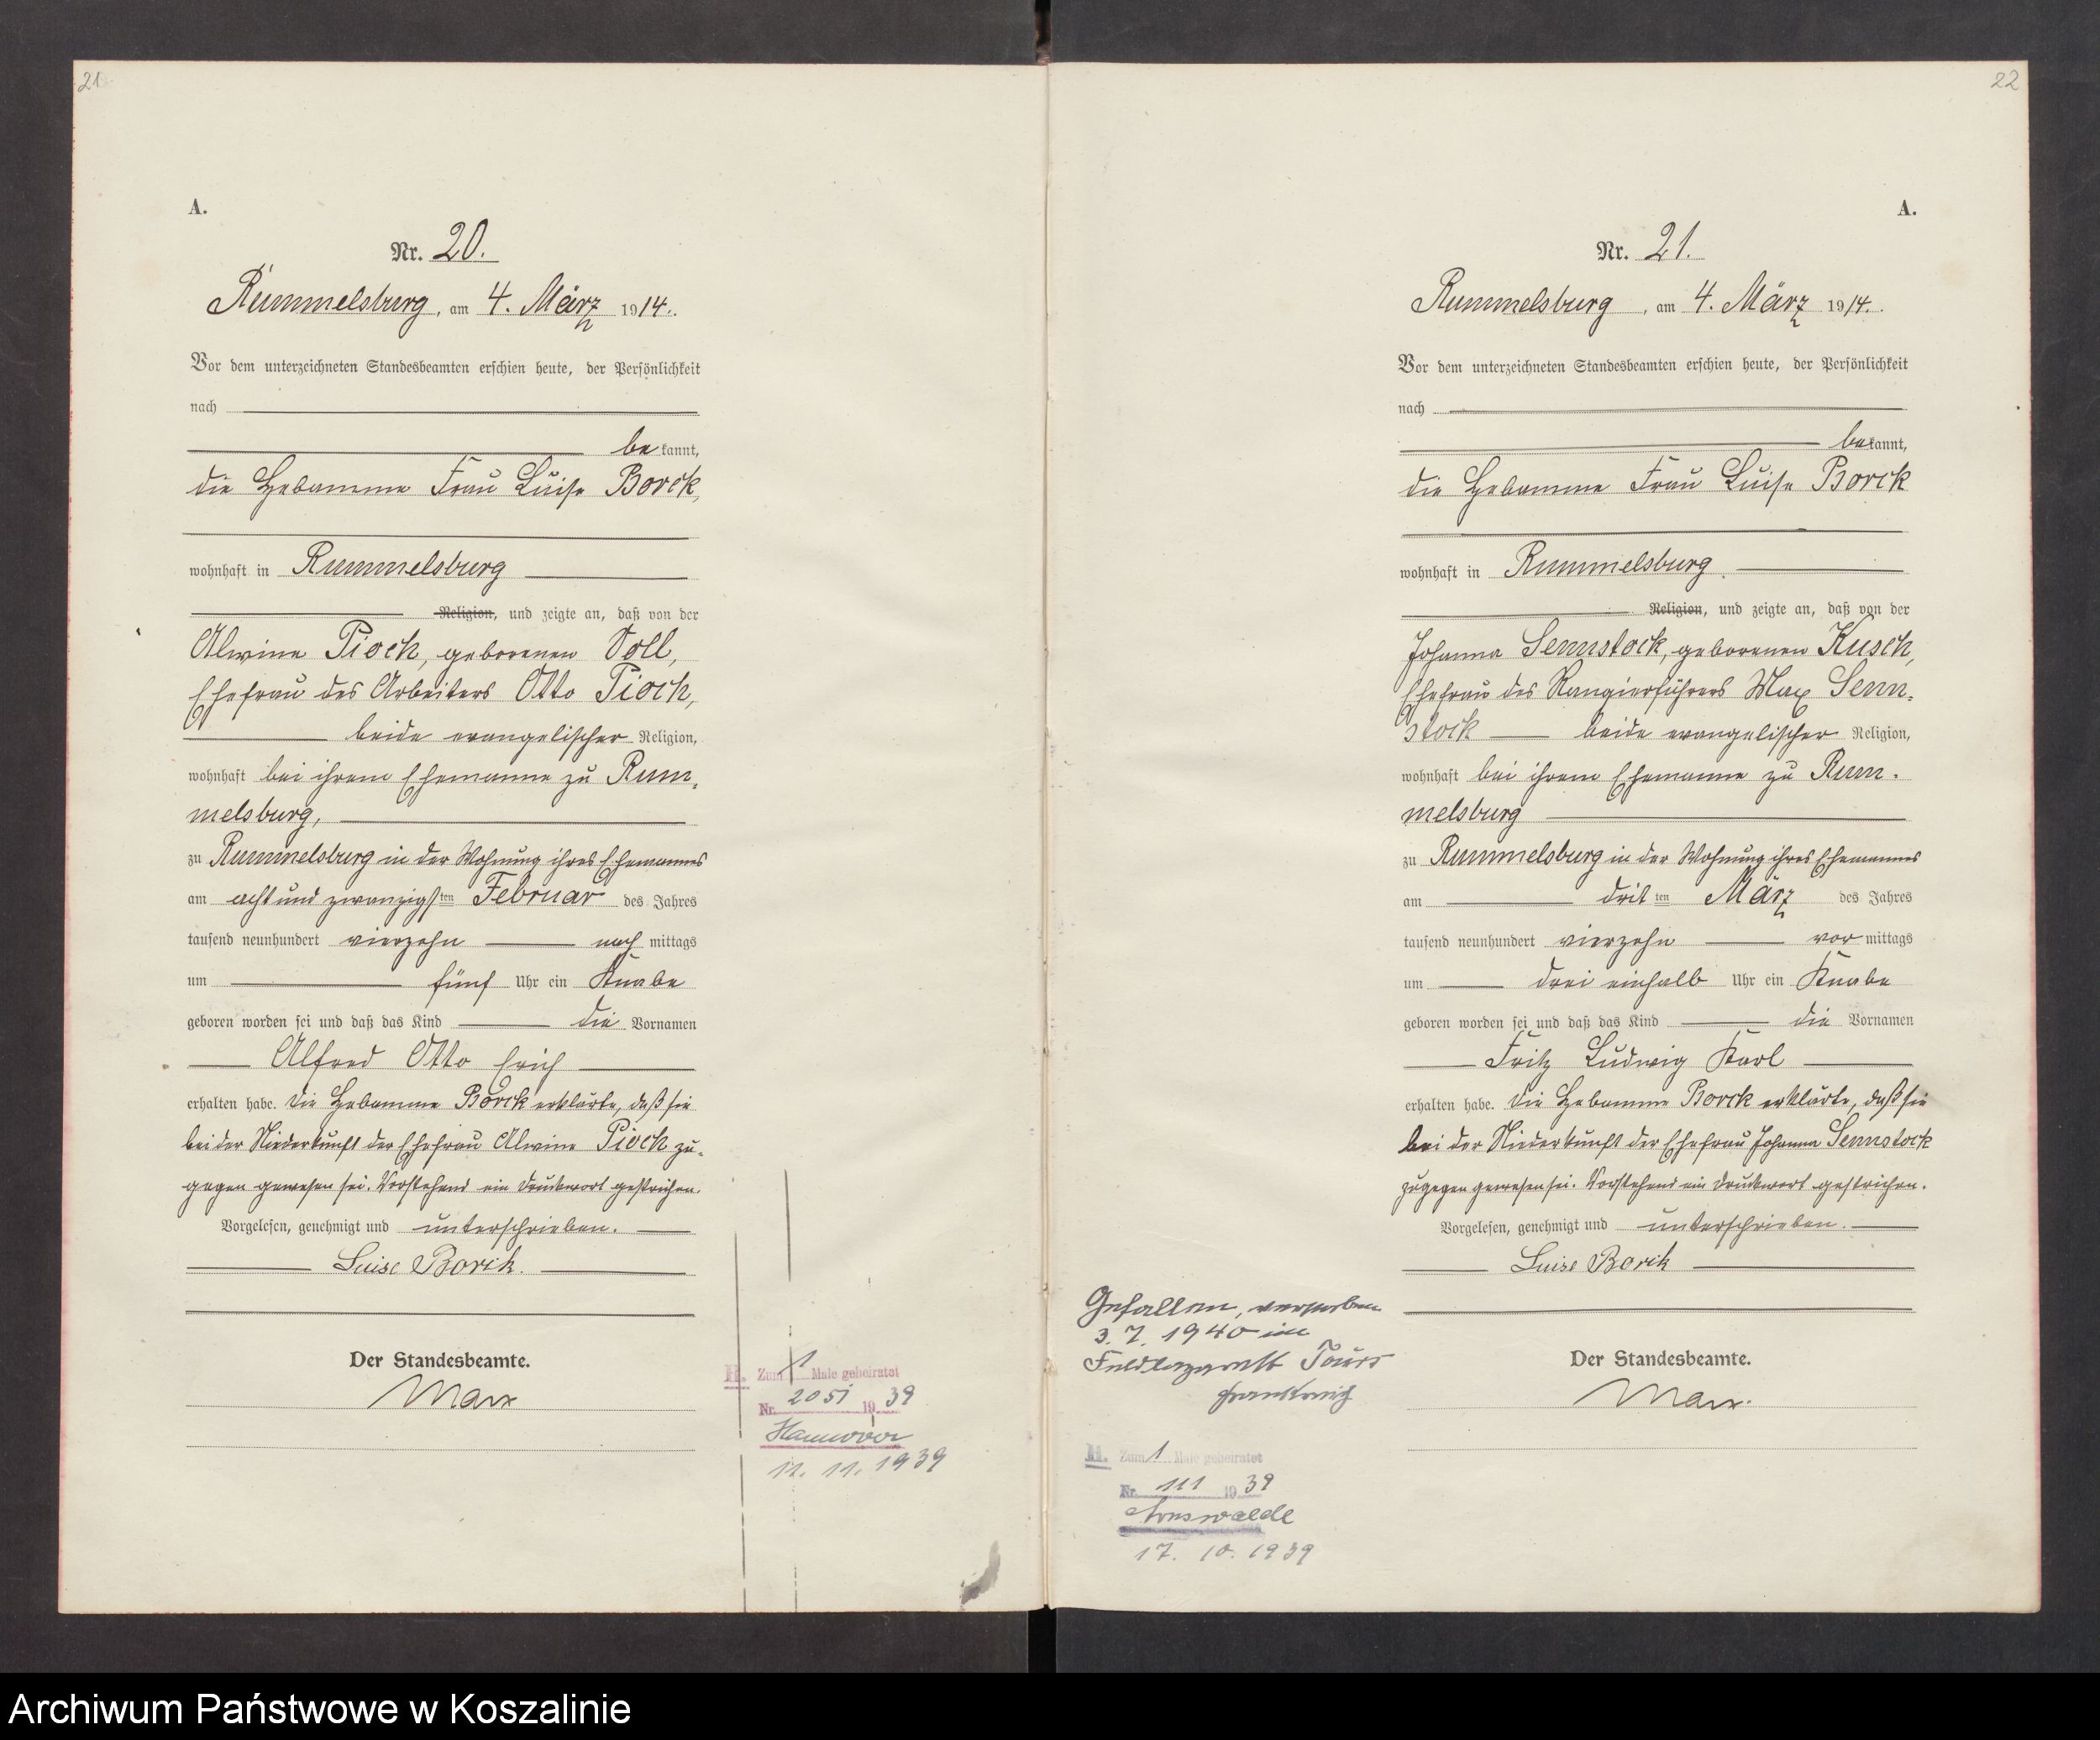 21
A.
Nr. 20.
Rummelsburg, am 4. März 1914.
Vor dem unterzeichneten Standesbeamten erschien heute, der Persönlichkeit
nach
bekannt,
die Hebamme Frau Luise Borck,
wohnhaft in Rummelsburg
Religion, und zeigte an, daß von der
Alwine Pioch, geborenen Voll,
Ehefrau des Arbeiters Otto Pioch,
beide evangelischer Religion,
wohnhaft bei ihrem Ehemanne zu Rum-
melsburg,
zu Rummelsburg in der Wohnung ihres Ehemannes
am acht und zwanzigsten Februar des Jahres
tausend neunhundert vierzehn nachmittags
um fünf Uhr ein Knabe
geboren worden sei und daß das Kind die Vornamen
Alfred Otto Erich
erhalten habe. Die Hebamme Borck erklärte, daß sie
bei der Niederkunft der Ehefrau Alwine Pioch zu-
gegen gewesen sei. Vorstehend ein Druckwort gestrichen.
Vorgelesen, genehmigt und unterschrieben.
Luise Borck.
Der Standesbeamte.
Marx
H. Zum 1 Male geheiratet
Nr. 2051 1939
Hannover
11. 11. 1939
22
A.
Nr. 21.
Rummelsburg, am 4. März 1914.
Vor dem unterzeichneten Standesbeamten erschien heute, der Persönlichkeit
nach
bekannt,
die Hebamme Frau Luise Borck
wohnhaft in Rummelsburg
Religion, und zeigte an, daß von der
Johanna Sennstock, geborenen Kusch,
Ehefrau des Rangierführers Max Senn-
stock beide evangelischer Religion,
wohnhaft bei ihrem Ehemanne zu Rum-
melsburg
zu Rummelsburg in der Wohnung ihres Ehemannes
am dritten März des Jahres
tausend neunhundert vierzehn vormittags
um drei einhalb Uhr ein Knabe
geboren worden sei und daß das Kind die Vornamen
Fritz Ludwig Karl
erhalten habe. Die Hebamme Borck erklärte, daß sie
bei der Niederkunft der Ehefrau Johanna Sennstock
zugegen gewesen sei. Vorstehend ein Druckwort gestrichen.
Vorgelesen, genehmigt und unterschrieben.
Luise Borck
Der Standesbeamte.
Marx.
Gefallen, verstorben
3. 7. 1940 im
Feldlazarett Tours
Frankreich
H. Zum 1 Male geheiratet
Nr. 111 1939
Arnswalde
17. 10. 1939
Archiwum Państwowe w Koszalinie